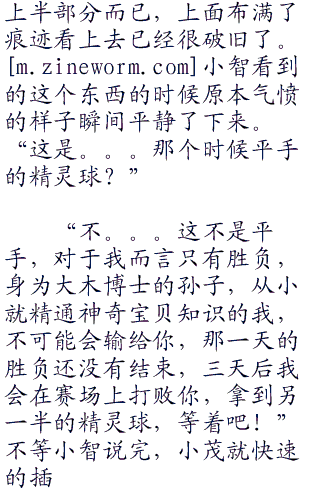 上半部分而已，上面布满了
痕迹看上去已经很破旧了。
[m.zineworm.com]小智看到
的这个东西的时候原本气愤
的样子瞬间平静了下来。
“这是。。。那个时候平手
的精灵球？”
“不。。。这不是平
手，对于我而言只有胜负，
身为大木博士的孙子，从小
就精通神奇宝贝知识的我，
不可能会输给你，那一天的
胜负还没有结束，三天后我
会在赛场上打败你，拿到另
一半的精灵球，等着吧！”
不等小智说完，小茂就快速
的插